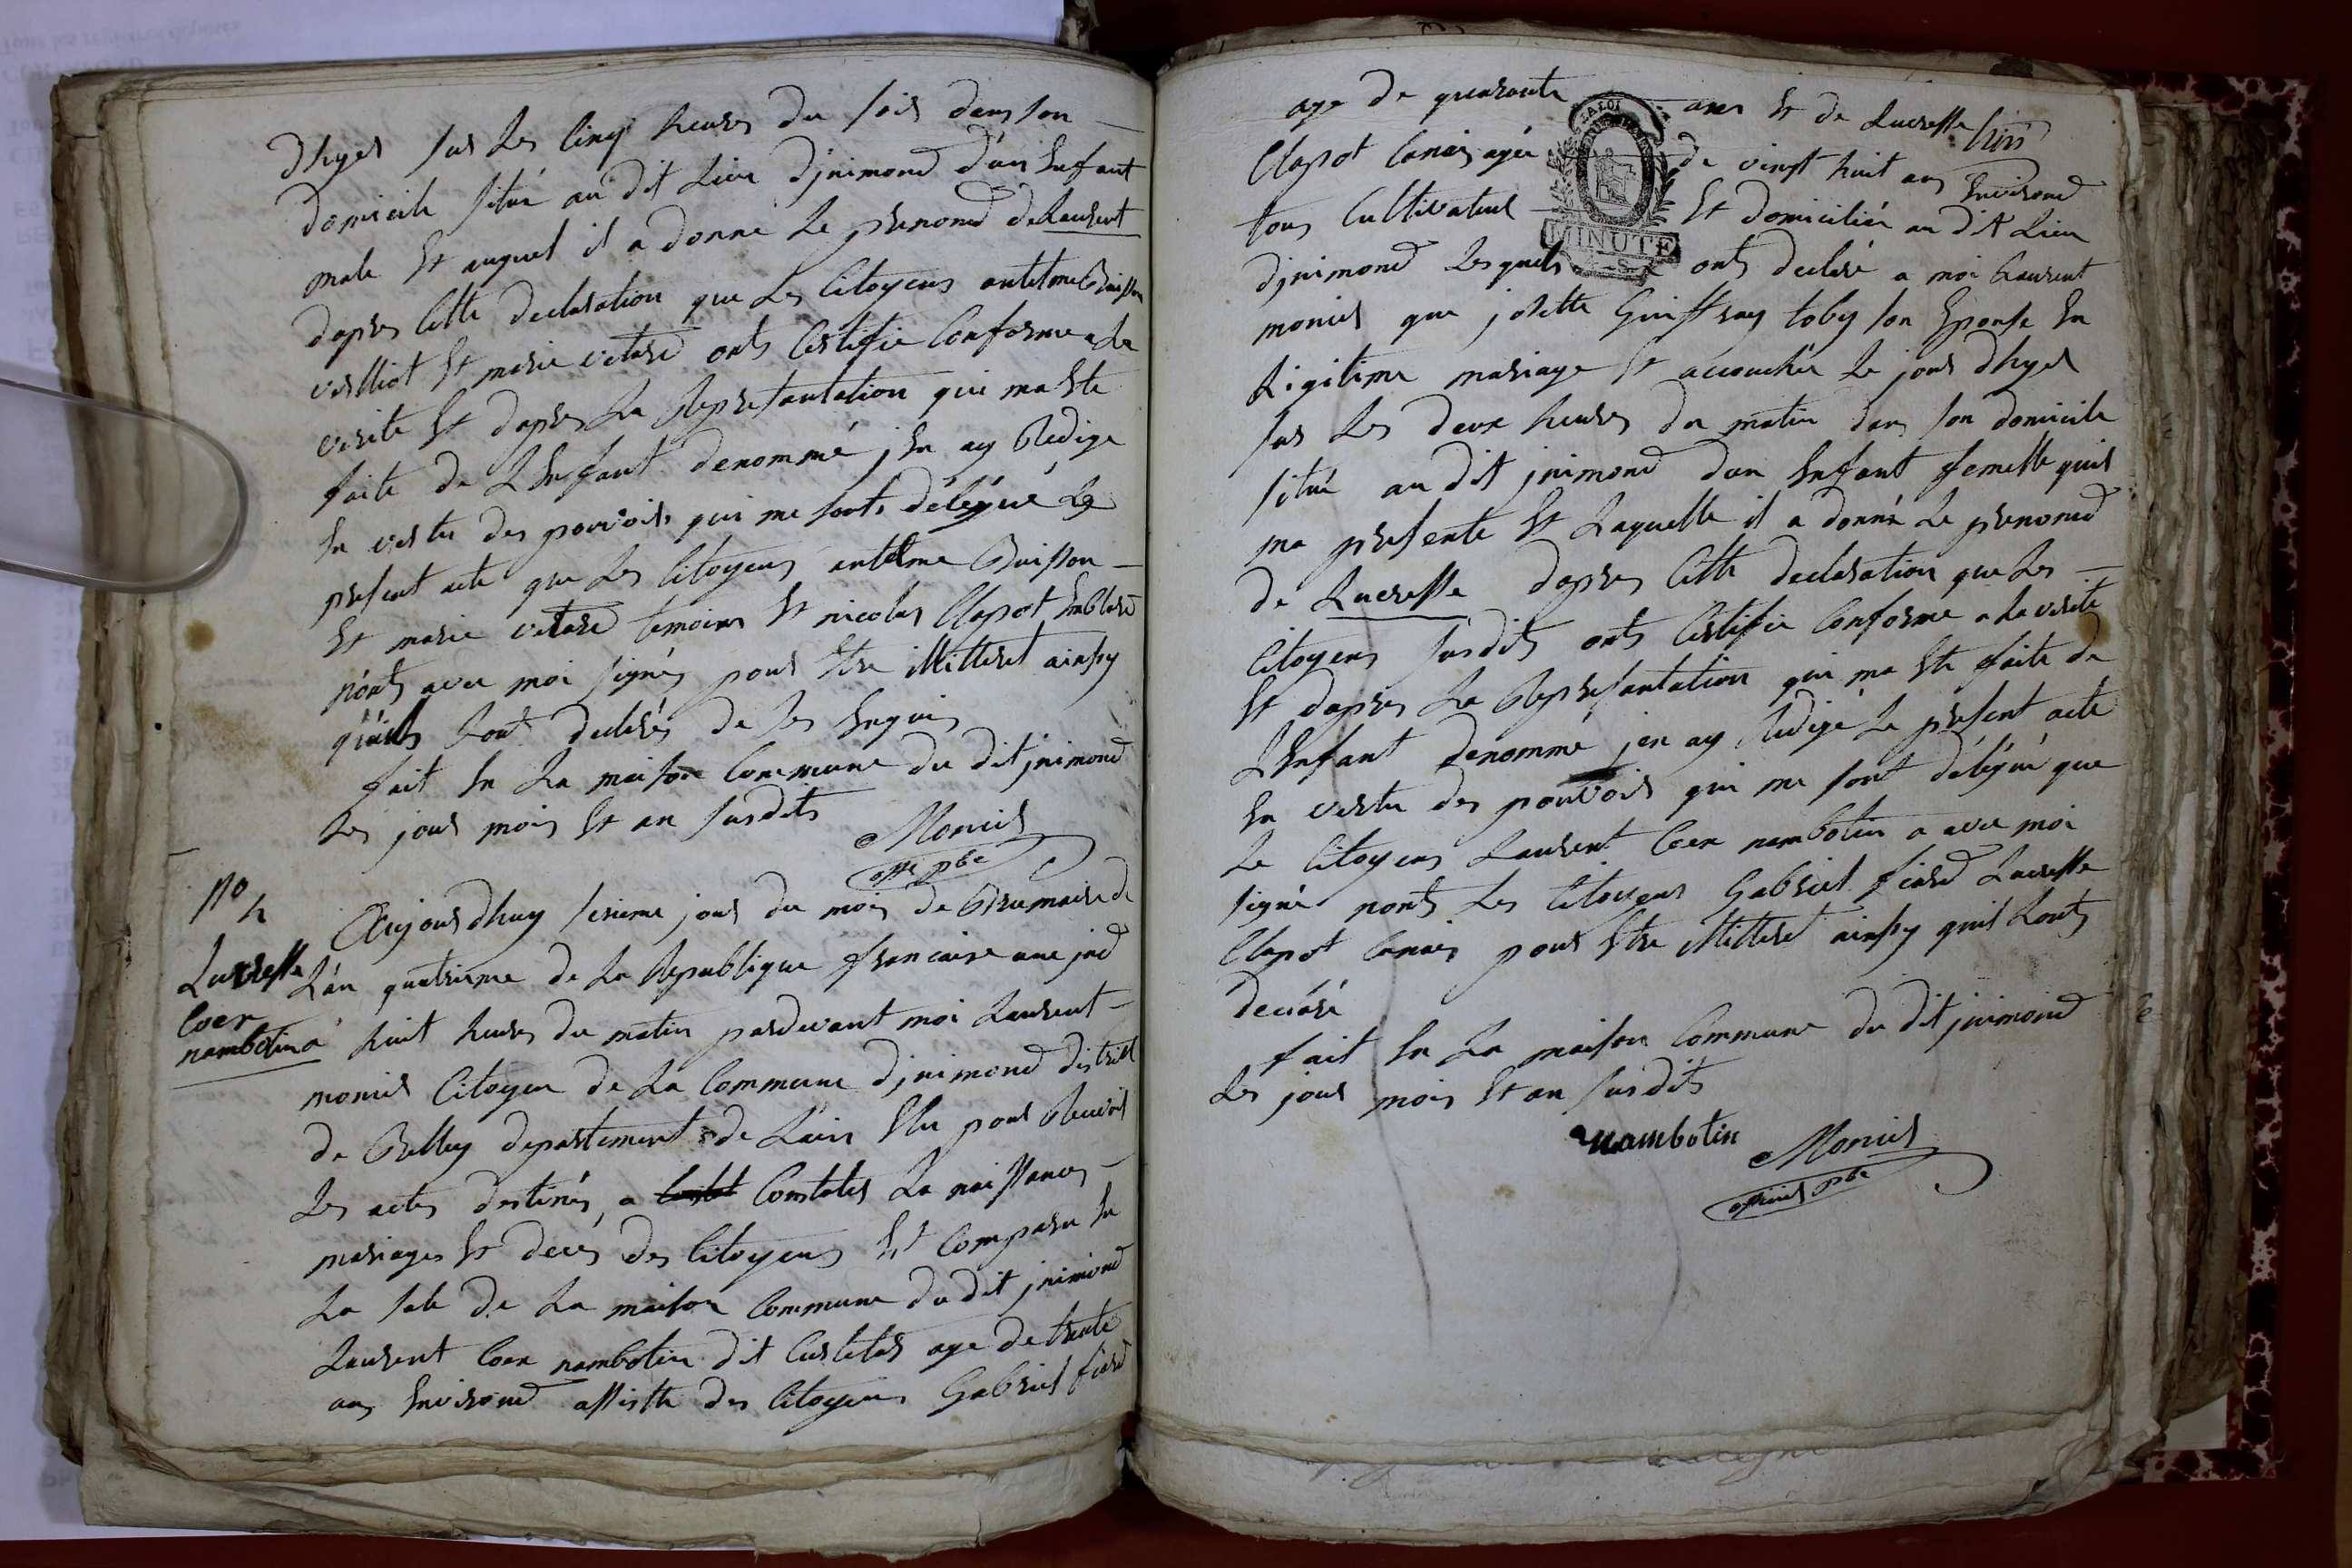 dhyer sur les cinq heures du soir dans son
domicile situé au dit lieu djnimond d'un enfant
male et auquel il a donné le prenond de Laurent
dapres cette declaration que les citoyens antelme Buisson
et marie vetard onts certifie conforme a la
verite et dapres la representation qui ma ete
faite de l enfant denommé j en ay redige
en vertu des pouvoirs qui me sonts délégué le
present acte que les citoyens antelme Buisson
et marie vetard temoins et nicolas Clapot
n'onts avec moi signés pour etre illitteret ainsy
qu'ils l'ont declarés de les enquis
fait en la maison commune du dit jnimond
les jour mois et an susdits
Monier
offr pbc
No 4
Lucresse
Coer
nambotin
Aujourdhuy sexieme jour du mois de Brumaire de
L'an quatrieme de la Republique francaise une jnd
à huit heures du matin pardevant moi Laurent
monier citoyen de la commune djnimond district
de Belley departement de L'ain elu pour recevoir
les actes destinés a constater la naissances
mariages et decés des citoyens et comparu en
la sale de la maison commune du dit jnimond
Laurent Coer nambotin dit age de trente
ans environd assisté des citoyens Gabriel fiard
age de quarante ans et de Lucresse
Clapot canier agée de vingt huit ans environd
tous cultivateur et domiciliér au dit lieu
djnimond lesquels onts declaré a moi Laurent
monier que josette Guiffray toby son epouse en
Ligitime mariage et accouchée le jour dhyer
sur les deux heures du matin dans son domicile
situé au dit jnimond dun enfant femelle quil
ma presente et laquelle il a donné le prenond
de Lucresse dapres cette declaration que les
citoyens susdits onts certifie conforme a la verité
et dapres la representation qui ma ete faite de
L enfant denommé jen ay redigé le present acte
en vertu des pouvoir qui me sont délégué que
le citoyens Laurent Coer nambotin a avec moi
signé nonts les citoyens Gabriel fiard Lucresse
Clapot canier pour etre illitteré ainsy quil l'onts
declaré
fait en la maison commune du dit jnimond
les jour mois et an susdits
nambotin
Monier
officier pbc
LA LOI
MINUTE